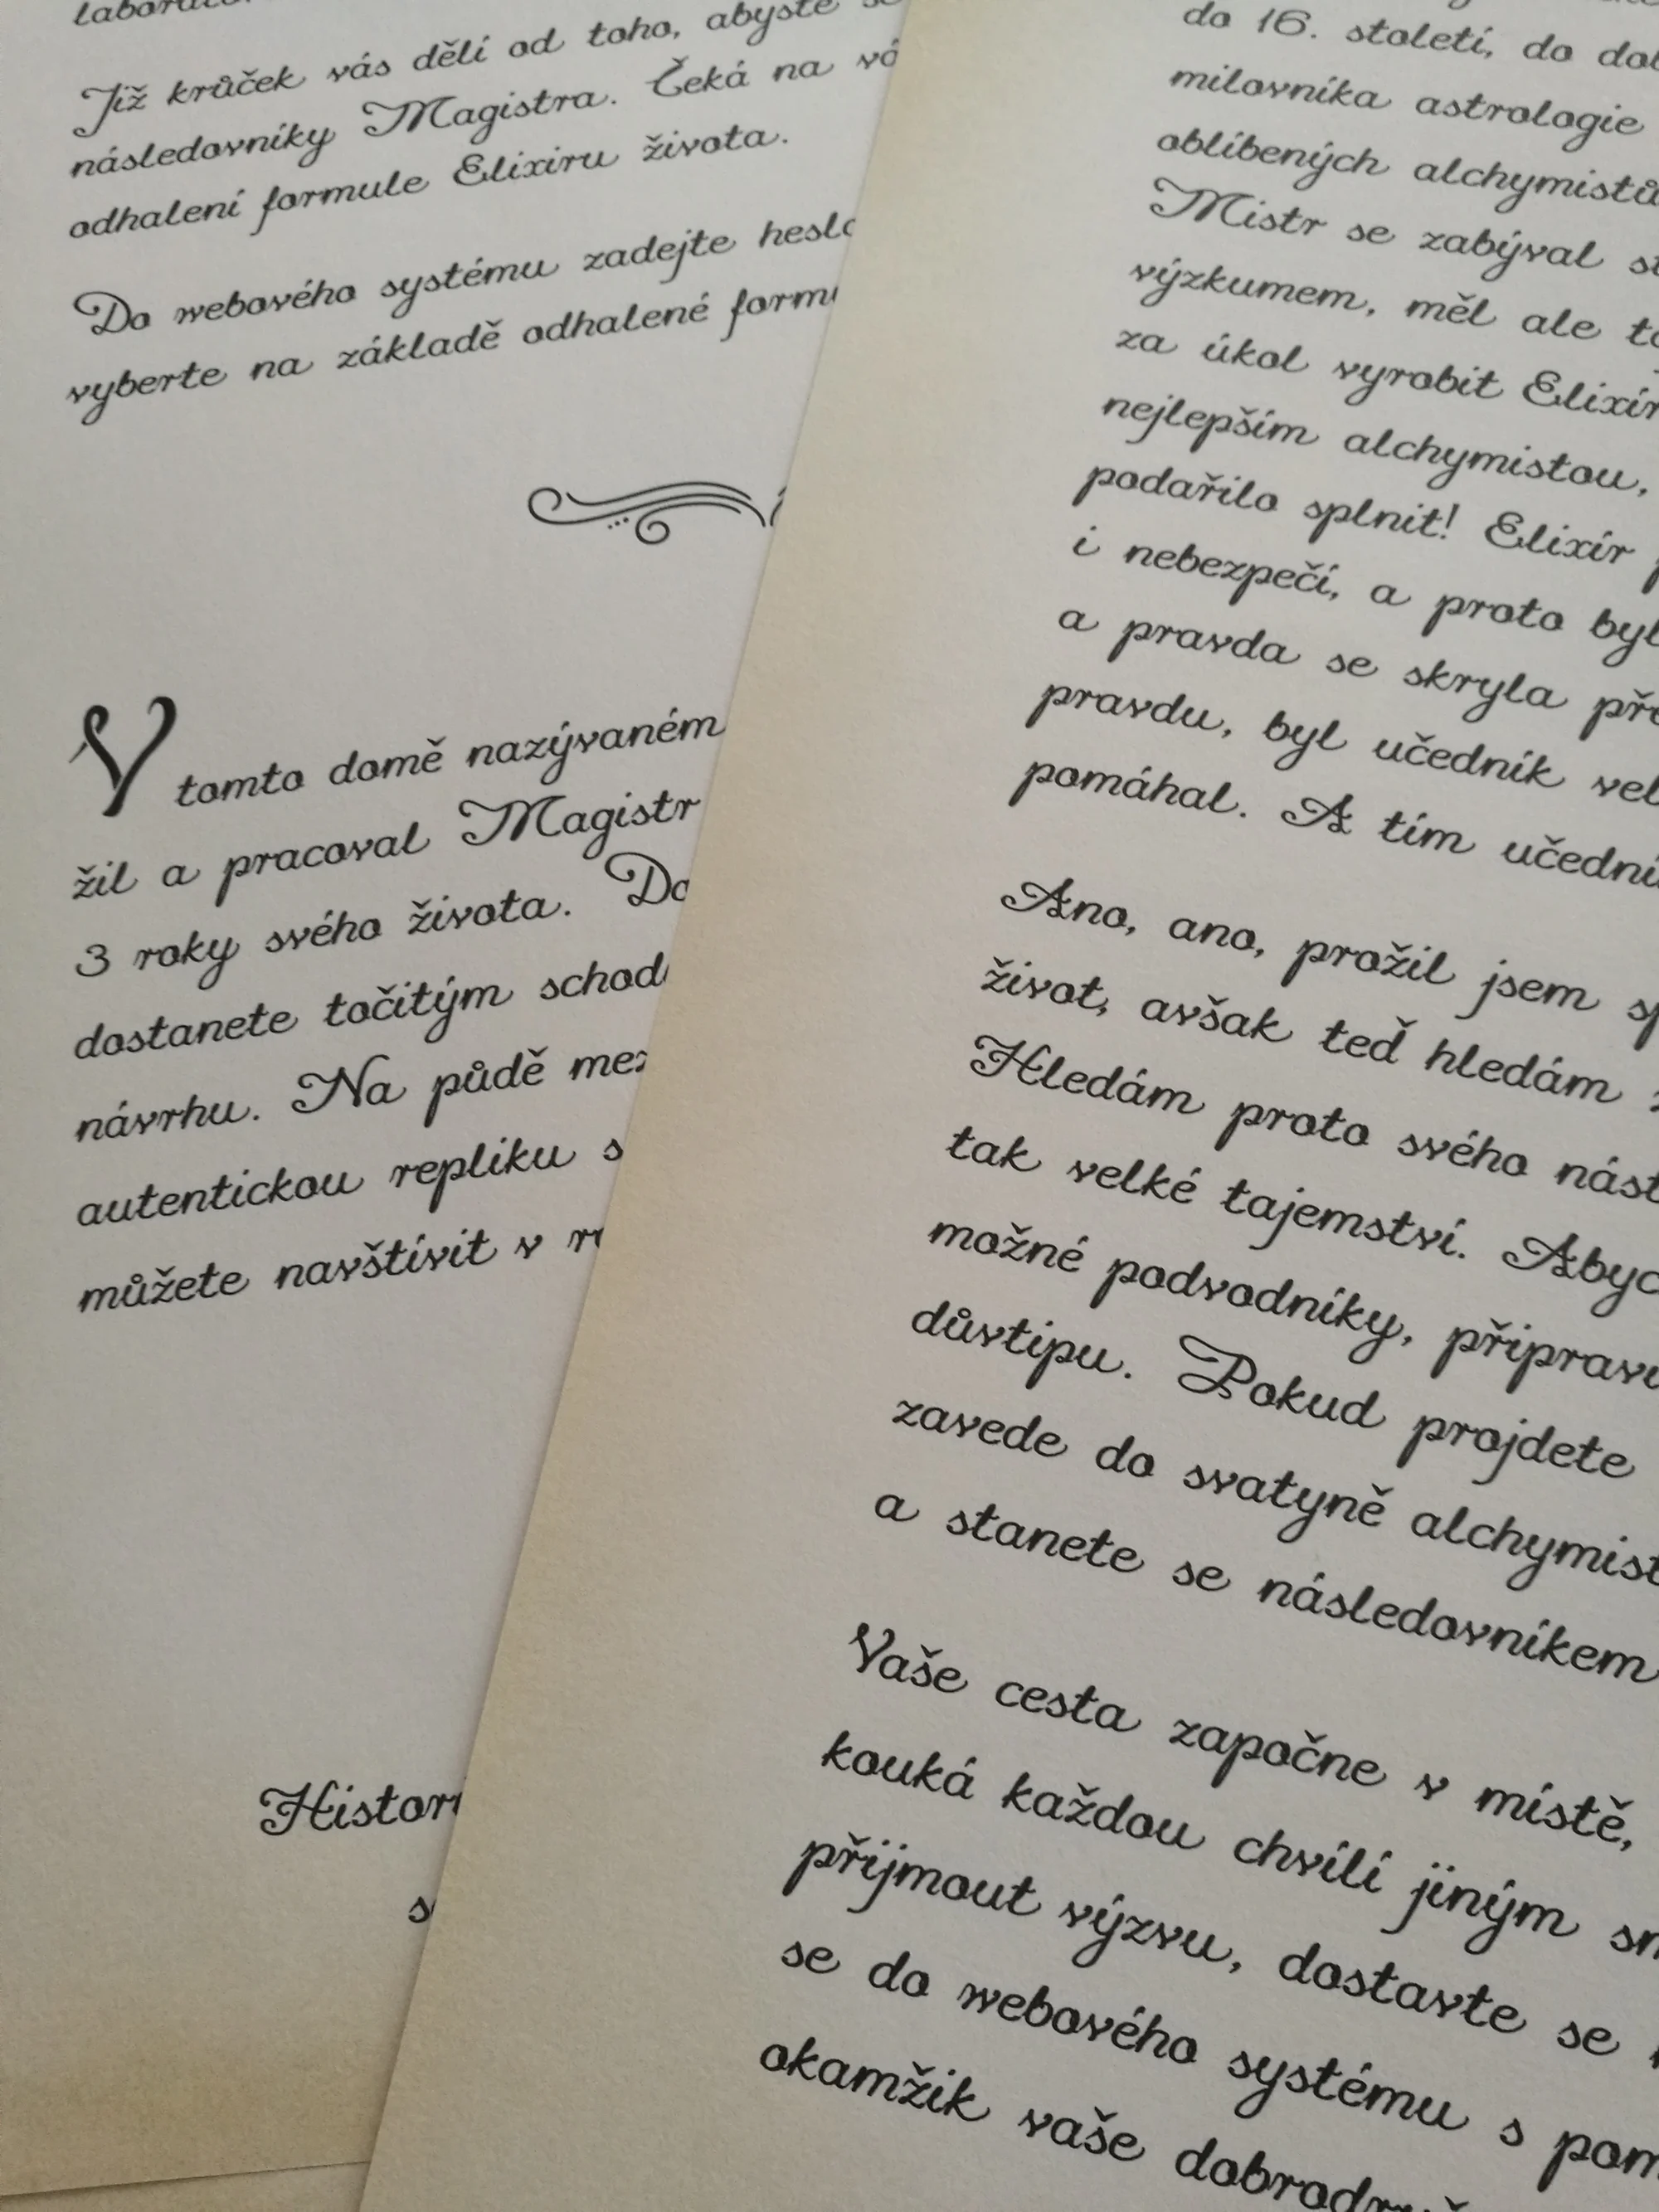 Již krůček vás dělí od toho, abyste
následovníky Magistra. Čeká na
odhalení formule Elixiru života.
Do webového systému zadejte
vyberte na základě odhalené
V tomto domě nazývaném
žil a pracoval Magistr
3 roky svého života.
dostanete točitým
návrhu. Na půdě
autentickou repliku
můžete navštívit v
do 16. století, do
milovníka astrologie
oblíbených alchymistů
Mistr se zabýval
výzkumem, měl ale
za úkol vyrobit Elixír
nejlepším alchymistou,
podařilo splnit! Elixír
i nebezpečí, a proto
a pravda se skryla
pravdu, byl učedník
pomáhal. A tím
Ano, ano, prožil jsem
život, avšak teď hledám
Hledám proto svého
tak velké tajemství.
možné podvodníky,
důvtipu. Pokud projdete
zavede do svatyně
a stanete se následovníkem
Vaše cesta započne v místě,
kouká každou chvílí jiným
přijmout výzvu, dostavte se
se do webového systému s
okamžik vaše